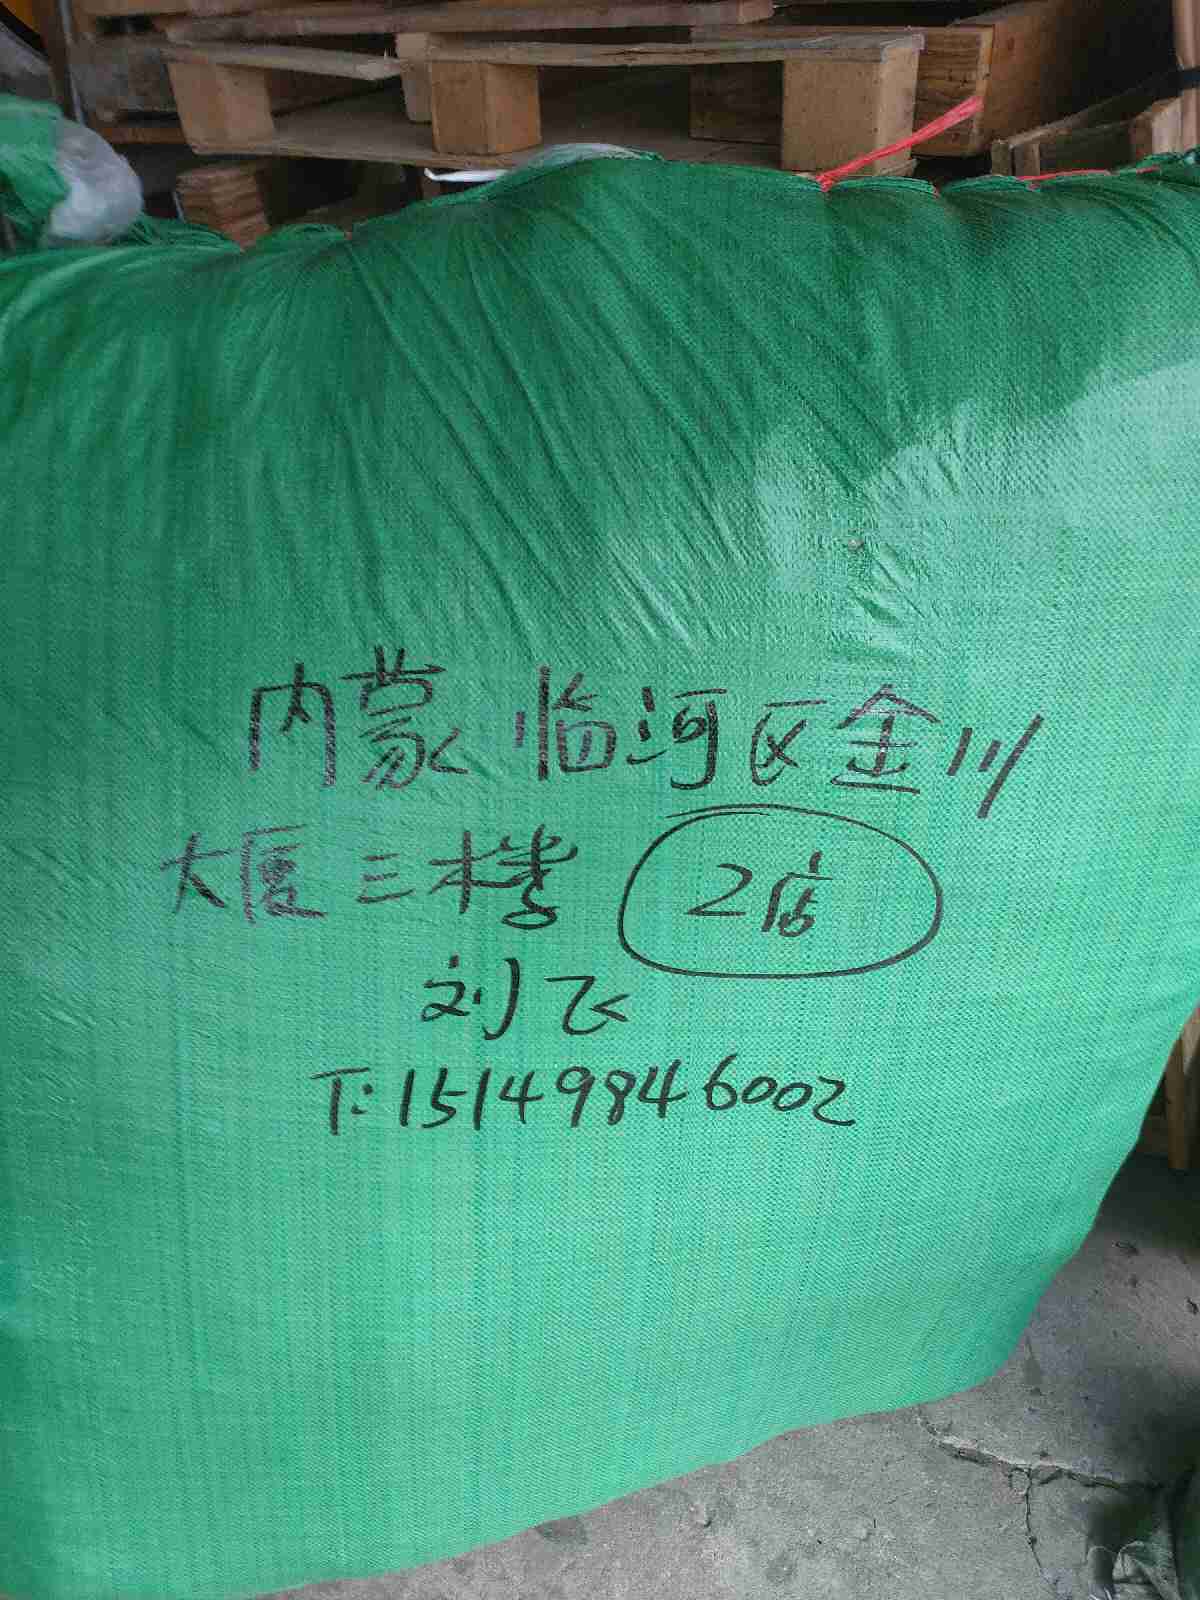 内蒙临河区金川
大厦三楼 2店
刘飞
T:15149846002